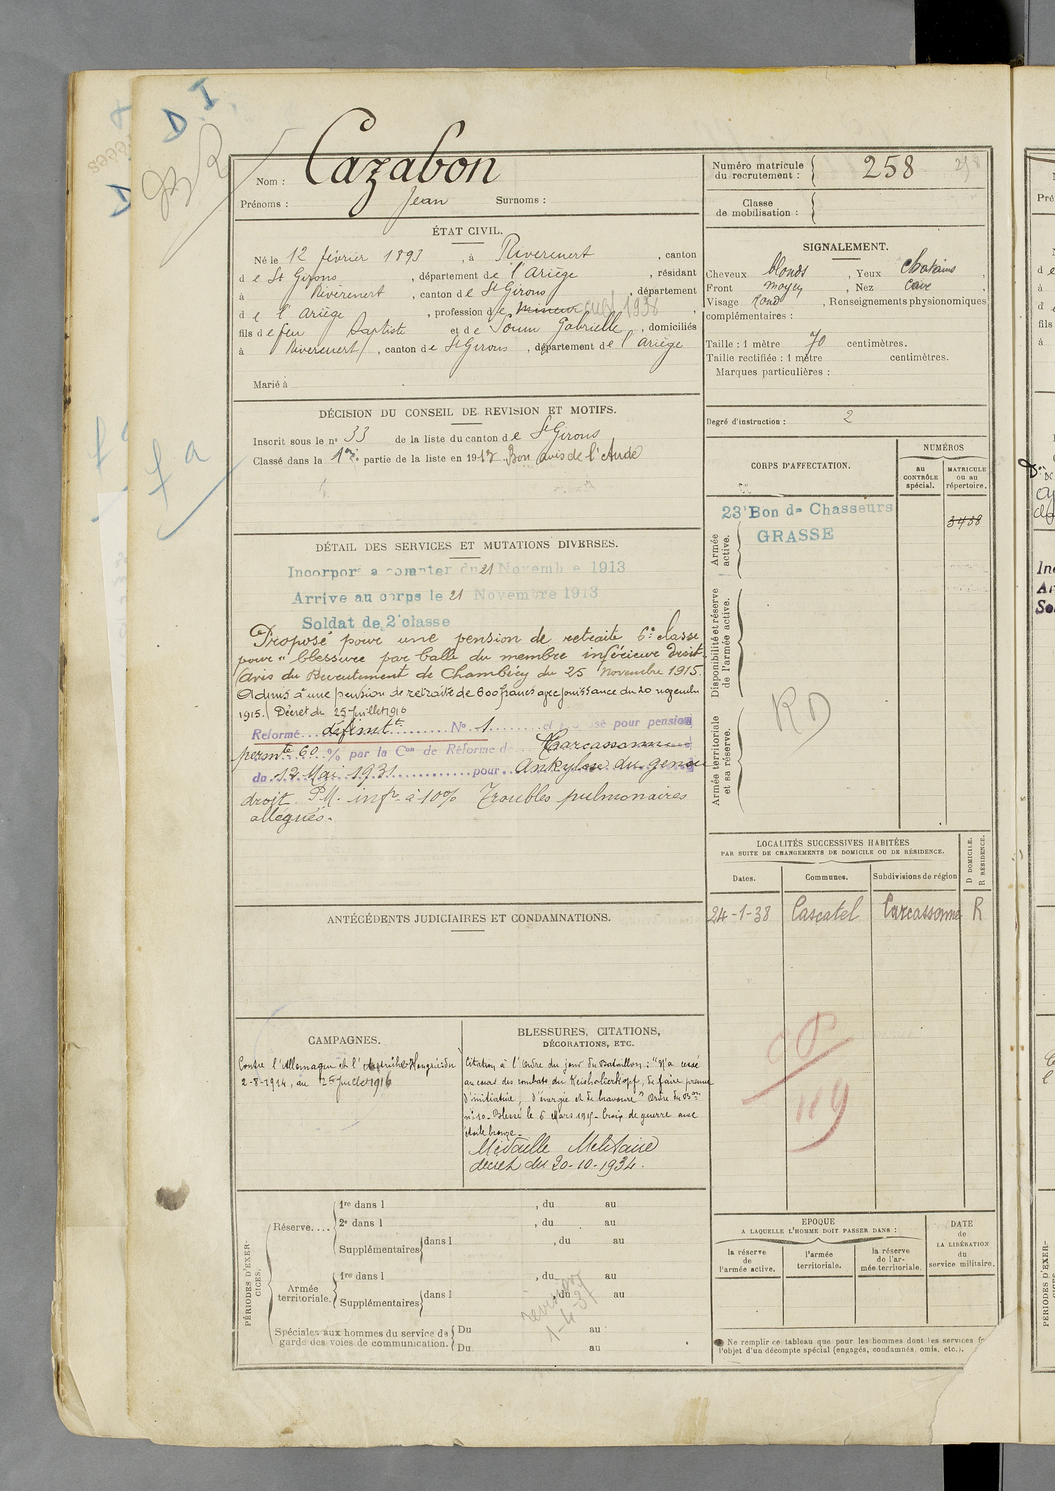 D. I.
Nom : Cazabon
Prénoms : Jean Surnoms :
Numéro matricule du recrutement : 258
Classe de mobilisation :
ÉTAT CIVIL.
Né le 12 février 1893, à Rivèrenert, canton
de St Girons, département de l'Ariège, résidant
à Rivèrenert, canton de St Girons, département
de l'Ariège, profession de mineur 1938
fils de feu Baptiste et de Soum Gabrielle, domiciliés
à Rivèrenert, canton de St Girons, département de l'Ariège
Marié à
SIGNALEMENT.
Cheveux blonds, Yeux chatains,
Front moyen, Nez cave,
Visage rond, Renseignements physionomiques
complémentaires :
Taille : 1 mètre 70 centimètres.
Taille rectifiée : 1 mètre centimètres.
Marques particulières :
Degré d'instruction : 2
DÉCISION DU CONSEIL DE REVISION ET MOTIFS.
Inscrit sous le no 33 de la liste du canton de St Girons
Classé dans la 1re partie de la liste en 1913 Bon avis de l'Aude
CORPS D'AFFECTATION.
NUMÉROS
au CONTRÔLE spécial.
MATRICULE ou au répertoire.
23e Bon de Chasseurs
GRASSE
3488
Armée active.
Disponibilité et réserve de l'armée active.
Armée territoriale et sa réserve.
RD
DÉTAIL DES SERVICES ET MUTATIONS DIVERSES.
Incorporé à compter du 21 Novembre 1913
Arrivé au corps le 21 Novembre 1913
Soldat de 2e classe
Proposé pour une pension de retraite 6e classe
pour "blessure par balle du membre inférieure droit
(avis du Recrutement de Chambéry du 25 Novembre 1915.
Admis à une pension de retraite de 600 francs avec jouissance du 20 novembre
1915. (Décret du 25 Juillet 1916
Reformé définitt No 1 et proposé pour pension
permte 60 % par la Con de Réforme de Carcassonne
du 12 Mai 1931 pour Ankylose du genou
droit P.M. infr à 10% Troubles pulmonaires
allégués.
LOCALITÉS SUCCESSIVES HABITÉES
PAR SUITE DE CHANGEMENTS DE DOMICILE OU DE RÉSIDENCE.
Dates. Communes. Subdivisions de région D DOMICILE. R RÉSIDENCE.
24-1-38 Cascatel Carcassonne R
ANTÉCÉDENTS JUDICIAIRES ET CONDAMNATIONS.
CAMPAGNES.
Contre l'Allemagne et l'Autriche-Hongrie du
2-8-1914, au 25 Juillet 1916
BLESSURES, CITATIONS,
DÉCORATIONS, ETC.
Citation à l'Ordre du jour du Bataillon : "N'a cessé
au cours des combats du Reichackerkopf, de faire preuve
d'initiative, d'énergie et de bravoure" Ordre du Bon
no 10 - Blessé le 6 Mars 1915 - Croix de guerre avec
étoile bronze.
Médaille Militaire
décret du 20-10-1934.
119
PÉRIODES D'EXERCICES.
Réserve....
1re dans l , du au
2e dans l , du au
Supplémentaires dans l , du au
Armée territoriale.
1re dans l , du au
Supplémentaires dans l , du au
Spéciales aux hommes du service de
garde des voies de communication.
Du au
Du au
1-4-37
EPOQUE
A LAQUELLE L'HOMME DOIT PASSER DANS :
la réserve de l'armée active.
l'armée territoriale.
la réserve de l'armée territoriale.
DATE de LA LIBÉRATION du service militaire.
Ne remplir ce tableau que pour les hommes dont les services
l'objet d'un décompte spécial (engagés, condamnés, omis, etc.).